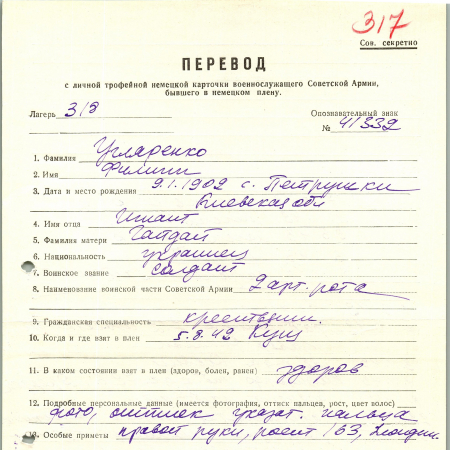 317
Сов. секретно
ПЕРЕВОД
с личной трофейной немецкой карточки военнослужащего Советской Армии,
бывшего в немецком плену.
Лагерь 318 Опознавательный знак
№ 41332
1. Фамилия Угляренко
2. Имя Филипп
3. Дата и место рождения 9.1.1902 с. Петрушки
Киевская обл
4. Имя отца Игнат
5. Фамилия матери Гайдай
6. Национальность украинец
7. Воинское звание солдат
8. Наименование воинской части Советской Армии 2 арт. рота
9. Гражданская специальность крестьянин.
10. Когда и где взят в плен 5.8.42
11. В каком состоянии взят в плен (здоров, болен, ранен) здоров
12. Подробные персональные данные (имеется фотография, оттиск пальцев, рост, цвет волос)
фото, оттиск указат. пальца
13. Особые приметы правой руки, рост 163,